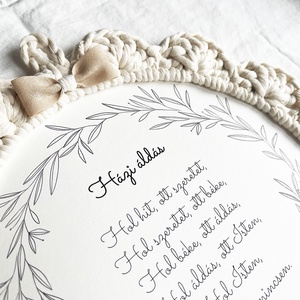 Házi áldás
Hol hit, ott szeretet,
Hol szeretet, ott béke,
Hol béke, ott áldás,
Hol áldás, ott Isten,
Hol Isten,
nincsen.